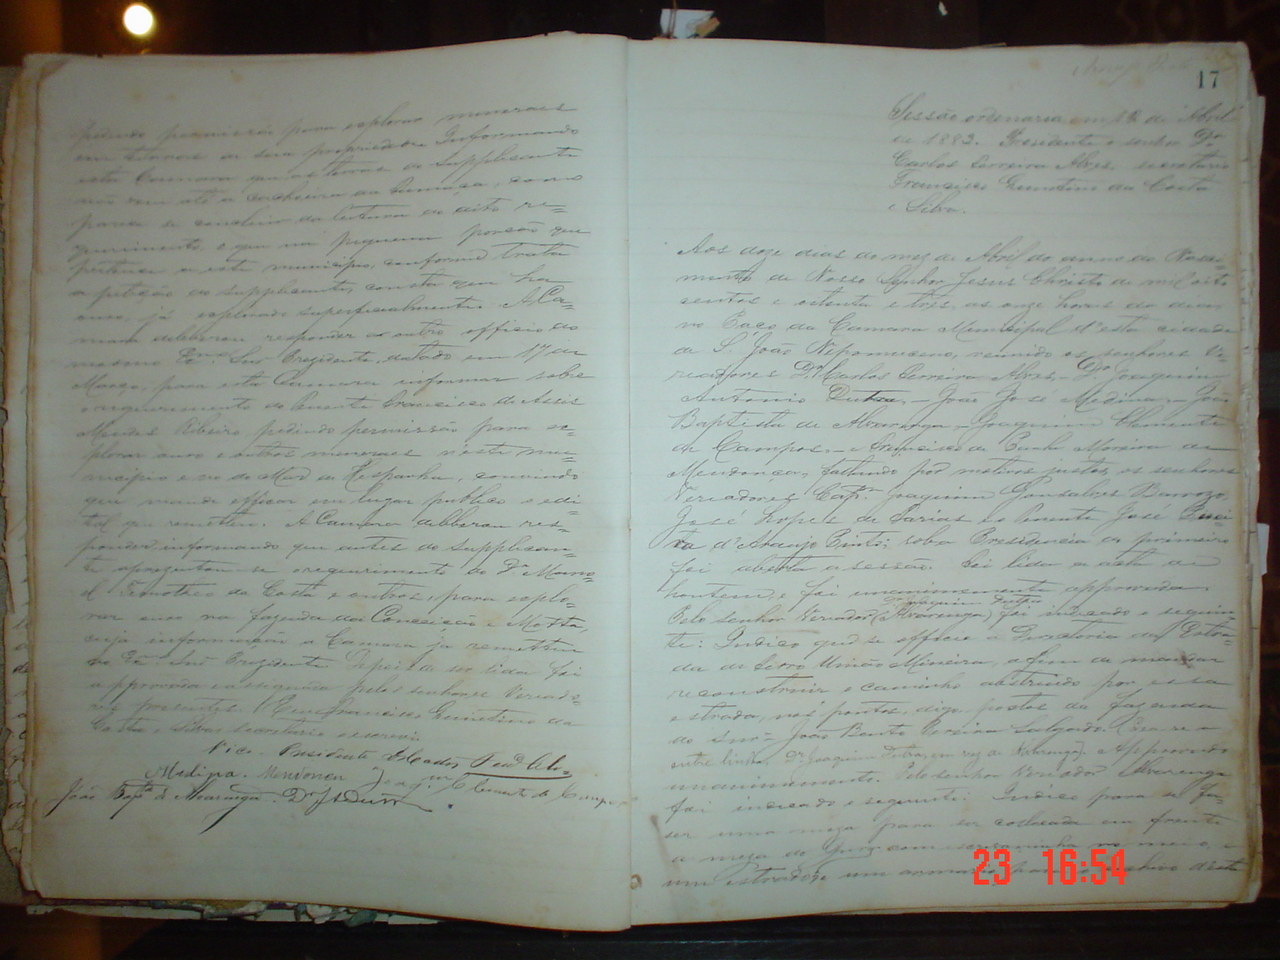 pedindo permissão para explorar mineraes
em terras de sua propriedade Informando
esta Camara que as terras do Supplicante
não vem até a cachoeira da fumaça, como
parece se concluir da leitura do dito re=
querimento e que na pequena porção que
pertence a este municipio, conforme trata
a petição do supplicante, consta que ha
annos, já explorado superficialmente. A Ca=
mara deliberou responder ao outro officio do
mesmo Exmo Snr Prezidente, datado em 17 de
Março, para esta Camara informar sobre
o requerimento do Tenente Francisco de Assis
Mendes Ribeiro pedindo permissão para ex=
plorar ouro e outros mineraes neste mu=
nicipio e no do Mar de Hespanha, convindo
que mande affixar em lugar publico o edi=
tal que remetteu. A Camara deliberou res=
ponder informando que antes do Supplican=
te aprezentou-se o requerimento do Dr Mano=
el Timotheo da Costa e outros, para explo=
rar ouro na fazenda da Conceição e Motta,
cuja informação a Camara já remetteu
ao Exmo Snr Prezidente. Depois de ser lida foi
approvada e assignada pelos senhores Veread=
res presentes. Eu Francisco Gumetino da
Costa e Silva, secretario escrevi.
Vice. Presidente
Medina. Mendonca Joaqm Clemente de Campos
João Bapta de Alvarenga. Dr J A Dutra
17
Sessão ordenaria em 12 de Abril
de 1883. Presidente o senhor Dr
Carlos Ferreira Alves, secretario
Francisco Gumetino da Costa
e Silva.
Aos doze dias do mez de Abril do anno do Nasci=
mento de Nosso Senhor Jesus Christo de mil oito
sentos e oitenta e tres, as onze horas do dia
no Paço da Camara Municipal d'esta cidade
de S. João Nepomuceno, reunido os senhores Ve=
readores Dr Carlos Ferreira Alves,- Dr Joaquim
Antonio Dutra,- João José Medina- João
Baptista de Alvarenga- Joaquim Clemente
de Campos,- e Francisco da Cunha Moreira de
Mendonca, faltando por motivos justos, os senhores
Vereadores Capm Joaquim Gonsalves Barrozo
José Lopes de Farias e o Tenente José
d'Araujo Pinto; soba Presidencia do primeiro
foi aberta a sessão. Foi lida a acta de
hontem, e foi unanimemente approvada.
Joaquim Dutra
Pelo senhor Vereador (Alvarenga) foi indicado o seguin=
te: Indico que se officie a Directoria da Estra=
da de Ferro União Mineira, afim de mandar
reconstruir o caminho obstruido por essa
estrada, nos pontos, digo, pastos da fazenda
do Snr João Bento Pereira Salgado. (Lea-se a
entre linha. Dr Joaquim Dutra, em vez de Alvarenga). Approvado
unanimemente. Pelo senhor Vereador Alvarenga
foi indicado o seguinte: Indico para se fa=
ser uma meza para ser collocada em frente
a meza do Jury com no meio, e
um estrado e um armario para archivo deste
23 16:54